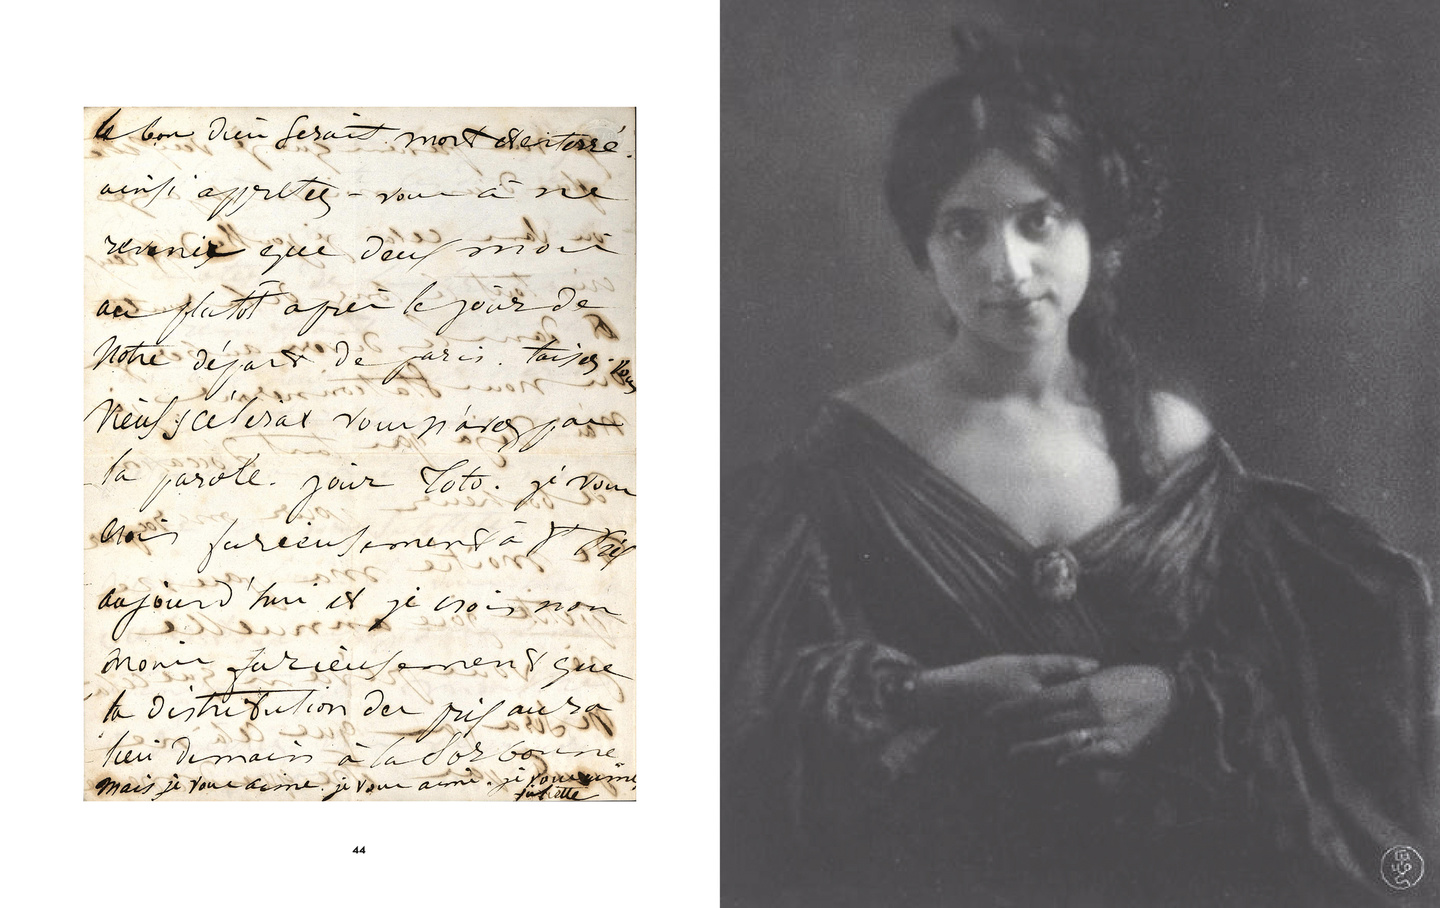 le bon Dieu serait mort et enterré.
ainsi apprêtez-vous à ne
revenir que deux mois
au plutôt après le jour de
Notre départ de Paris. taisez-vous
vieux scélérat vous n'avez pas
la parole. jour Toto. je vous
crois furieusement à
aujourd'hui et je crois non
moins furieusement que
la distribution des prix aura
lieu demain à la Sorbonne
mais je vous aime. je vous aime. je vous aime
juliette
44